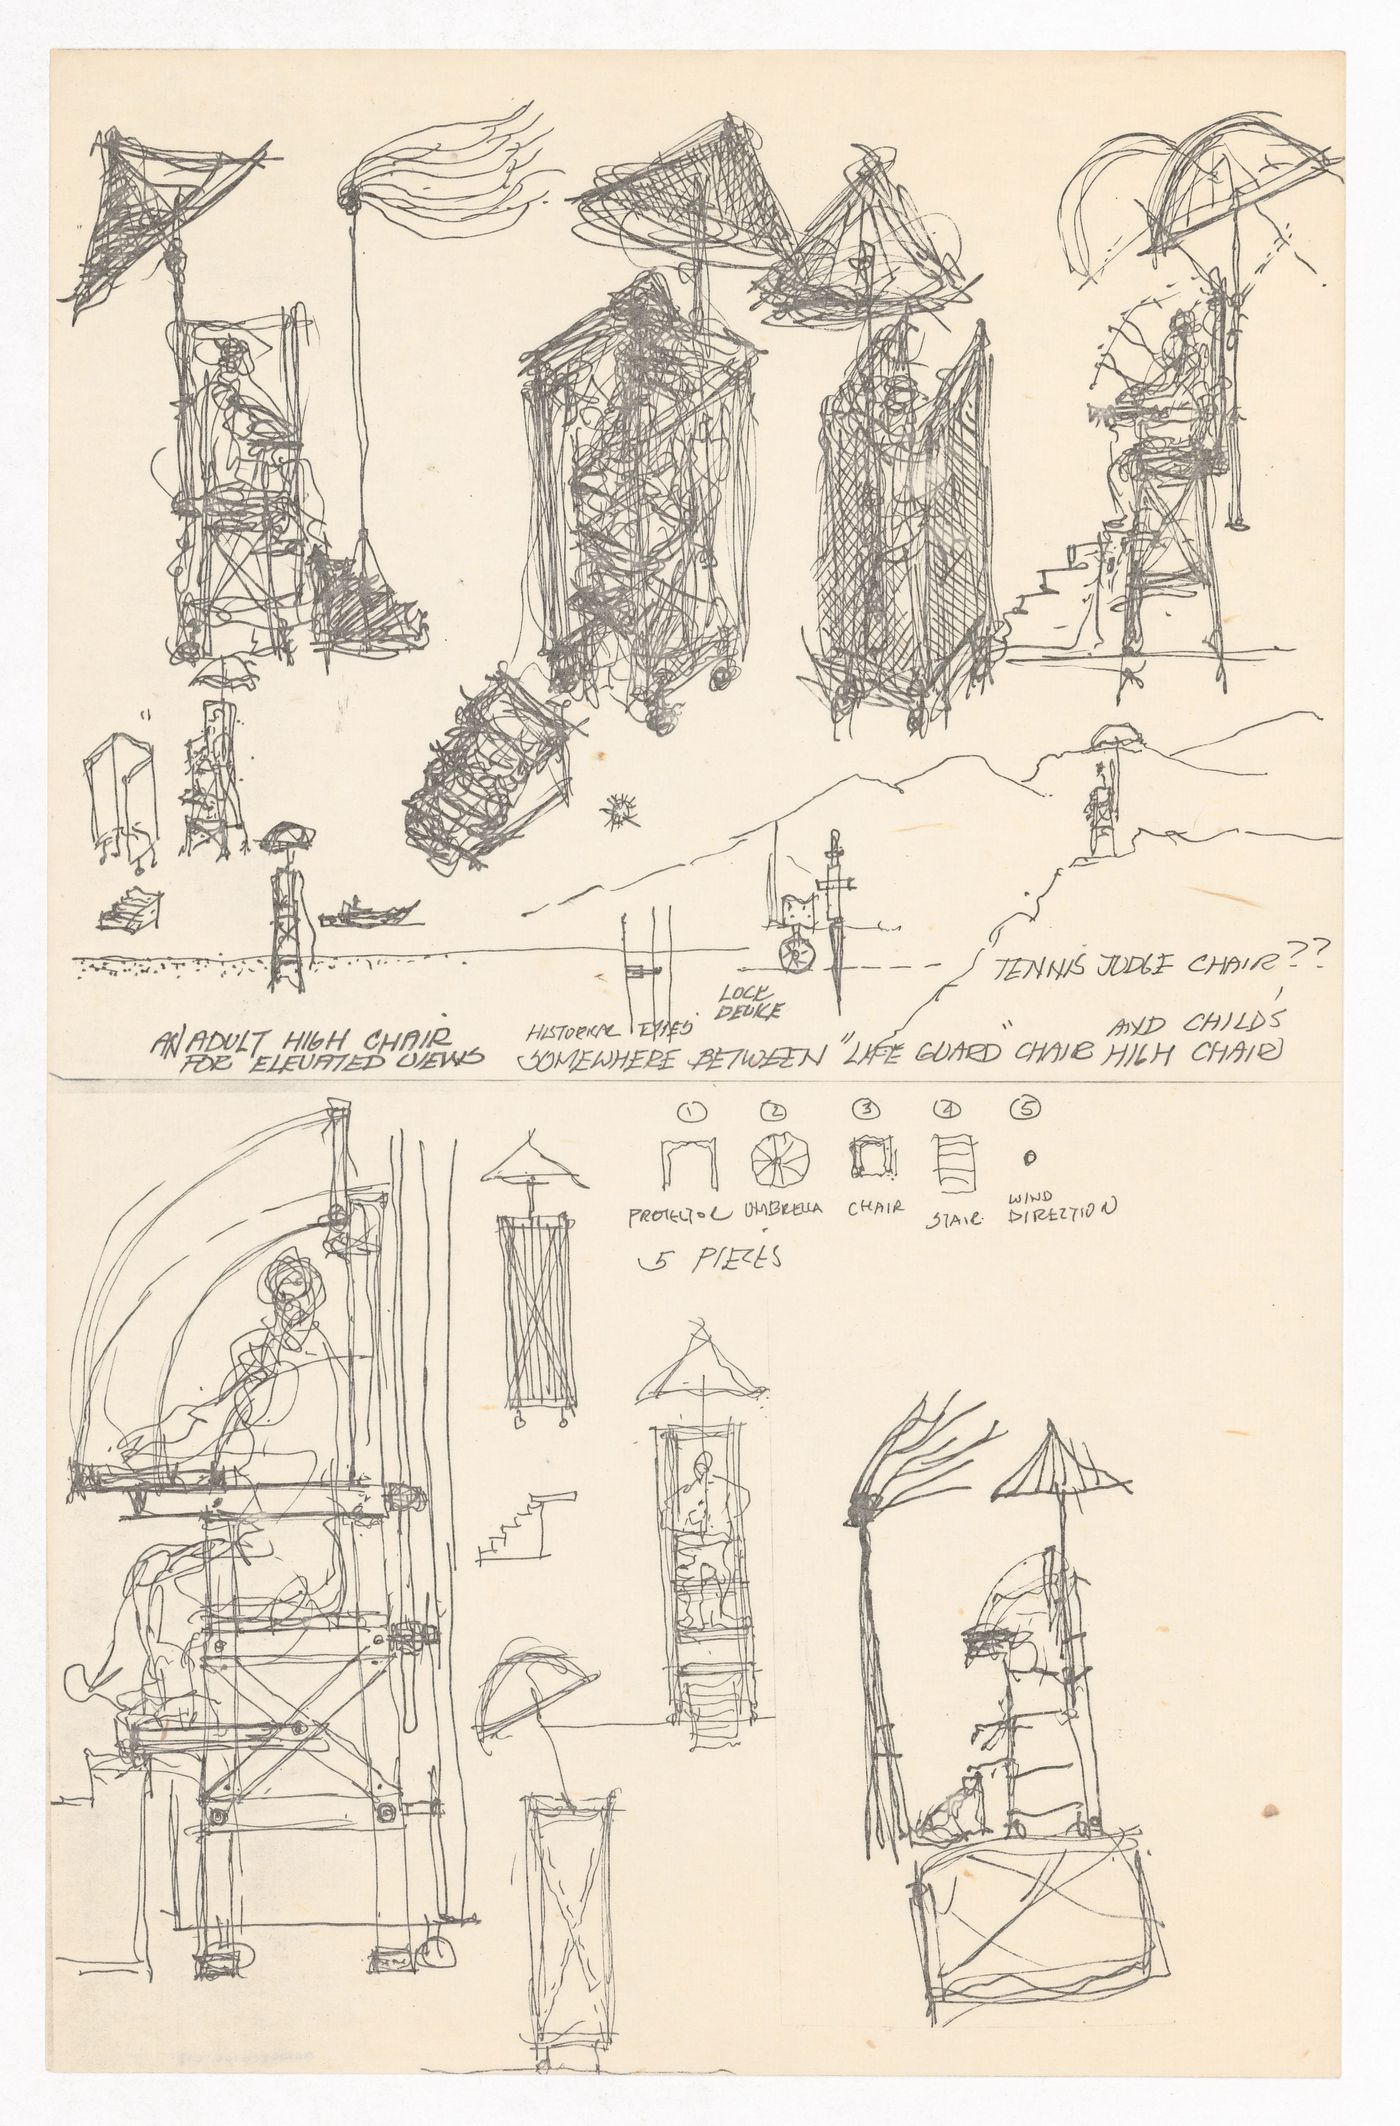 TENNIS JUDGE CHAIR??
LOCK
DEVICE
AN ADULT HIGH CHAIR
FOR "ELEVATED VIEWS
HISTORICAL TYPES
SOMEWHERE BETWEEN "LIFE GUARD" CHAIR
AND CHILD'S
HIGH CHAIR
1 2 3 4 5
PROTECTOR UMBRELLA CHAIR STAIR WIND
DIRECTION
5 PIECES